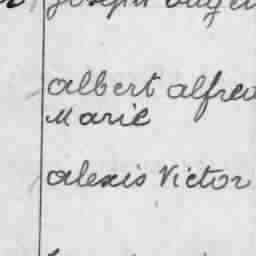 Joseph
albert alfred
Marie
alexis Victor